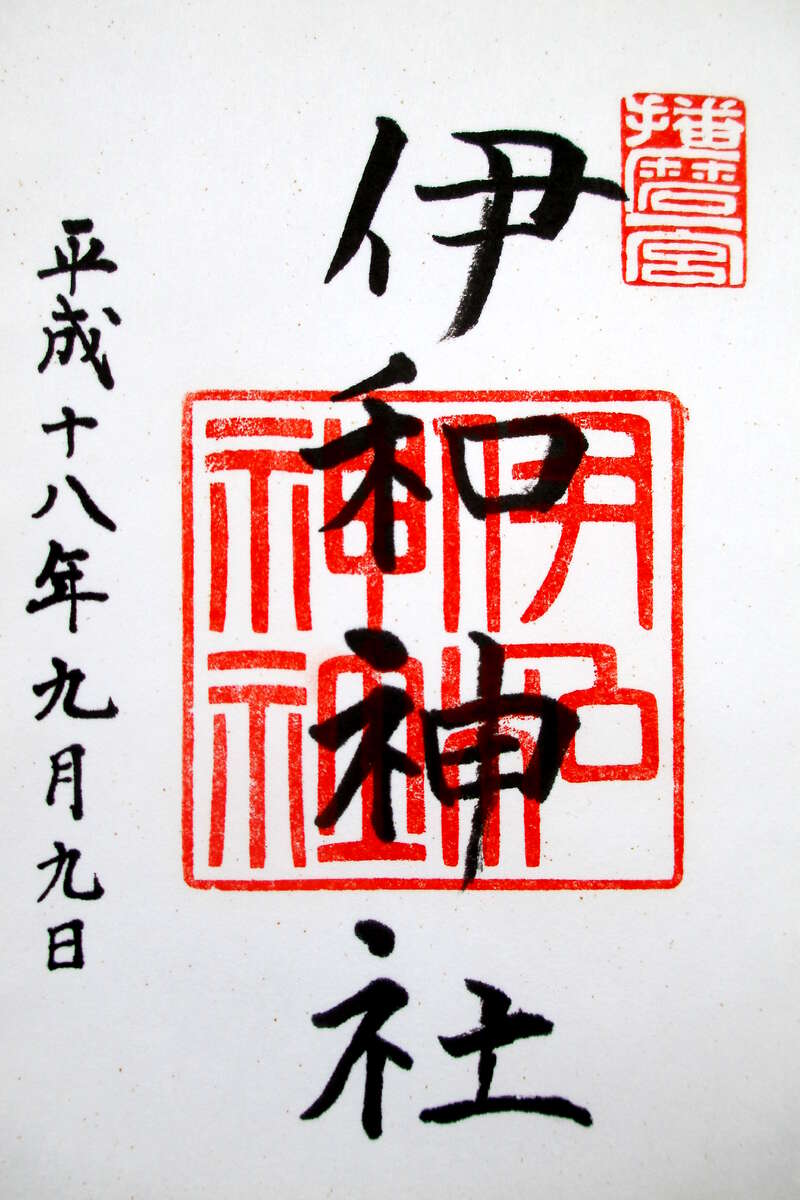 播磨一宮
伊和神社
伊和神社
平成十八年九月九日